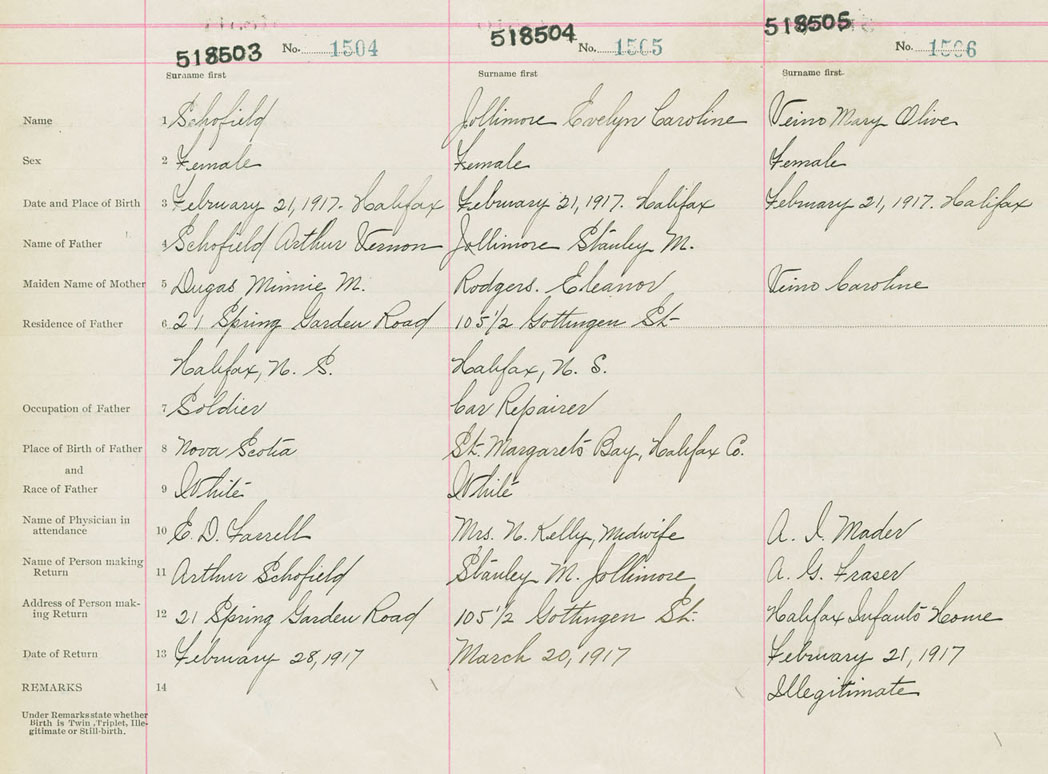 518503 No. 1504 518504 No. 1505 518505 No. 1506
Surname first Surname first Surname first
Name 1 Schofield Jollimore Evelyn Caroline Veino Mary Olive
Sex 2 Female Female Female
Date and Place of Birth 3 February 21, 1917. Halifax February 21, 1917. Halifax February 21, 1917. Halifax
Name of Father 4 Schofield Arthur Vernon Jollimore Stanley M.
Maiden Name of Mother 5 Dugas Minnie M. Rodgers. Eleanor Veino Caroline
Residence of Father 6 21 Spring Garden Road 105 1/2 Gottingen St.
Halifax, N. S. Halifax, N. S.
Occupation of Father 7 Soldier Car Repairer
Place of Birth of Father 8 Nova Scotia St. Margaret's Bay, Halifax Co.
and
Race of Father 9 White White
Name of Physician in
attendance 10 E. D. Farrell Mrs. N. Kelly, Midwife A. I. Mader
Name of Person making
Return 11 Arthur Schofield Stanley M. Jollimore A. G. Fraser
Address of Person mak-
ing Return 12 21 Spring Garden Road 105 1/2 Gottingen St. Halifax Infants Home
Date of Return 13 February 28, 1917 March 20, 1917 February 21, 1917
REMARKS 14 Illegitimate
Under Remarks state whether
Birth is Twin, Triplet, Ille-
gitimate or Still-birth.